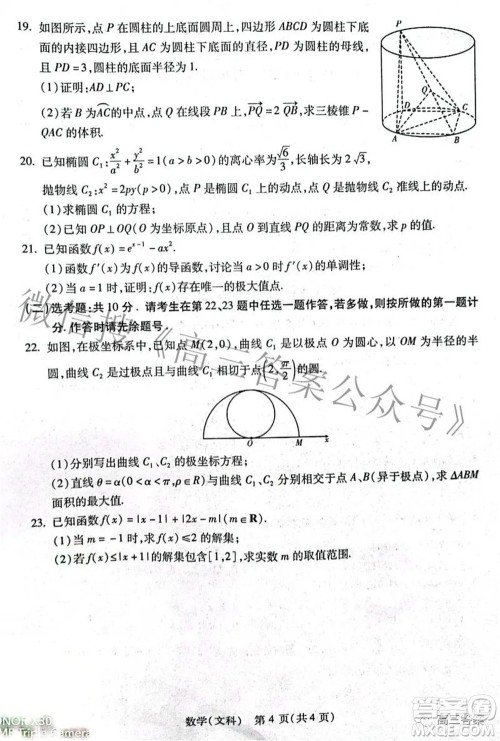 19. 如图所示，点 P 在圆柱的上底面圆周上，四边形 ABCD 为圆柱下底
面的内接四边形，且 AC 为圆柱下底面的直径，PD 为圆柱的母线，
且 PD=3，圆柱的底面半径为1.
(1)证明：AD⊥PC；
(2)若 B 为⌒AC的中点，点 Q 在线段 PB 上，→PQ=2→QB，求三棱锥 P-
QAC 的体积.
P
Q
D
C
A
B
20. 已知椭圆 C₁：x²/a²+y²/b²=1(a>b>0)的离心率为√6/3，长轴长为 2√3，
抛物线 C₂：x²=2py(p>0)，点 P 是椭圆上的动点，点 Q 是抛物线准线上的动点.
(1)求椭圆 C₁ 的方程；
(2)已知 OP⊥OQ(O 为坐标原点)，且点 O 到直线 PQ 的距离为常数，求 p 的值.
21. 已知函数 f(x)=eˣ⁻¹-ax².
(1)函数 f′(x)为 f(x)的导函数，讨论当
时 f′(x)的单调性；
时，证明：f(x)存在唯一的极大值点.
(二)选考题：共10分. 请考生在第22、23题中任选一题作答，若多做，则按所做的第一题计
分. 作答时请先涂题号.
22. 如图，在极坐标系中，已知点 M(2,0)，曲线 C₁ 是以极点 O 为圆心，以 OM 为半径的半
圆，曲线 C₂ 是过极点且与曲线 C₁ 相切于点(2,π/2)的圆.
O M x
(1)分别写出曲线 C₁、C₂ 的极坐标方程；
(2)直线 θ=α(0<α<π,ρ∈R)与曲线 C₁、C₂ 分别相交于点 A、B(异于极点)，求 △ABM
面积的最大值.
23. 已知函数 f(x)=|x-1|+|2x+m|(m∈R).
(1)当 m=-1时，求不等式 f(x)≤2 的解集；
(2)若 f(x)≤|2x+1|的解集包含[1,2]，求实数 m 的取值范围.
数学(文科) 第 4 页(共 4 页)
微信搜《高三答案公众号》
高三答案